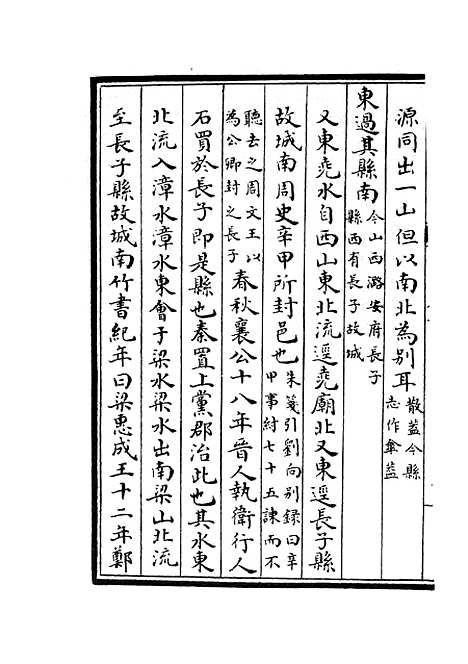 源同出一山但以南北為別耳散盖今縣志作傘盖
東過其縣南今山西潞安府長子縣西有長子故城
又東堯水自西山東北流逕堯廟北又東逕長子縣
故城南周史辛甲所封邑也朱箋引劉向别録曰辛甲事紂七十五諫而不
聽去之周文王以為公卿封之長子春秋襄公十八年晋人執衛行人
石買於長子即是縣也秦置上黨郡治此也其水東
北流入漳水漳水東會于梁水梁水出南梁山北流
至長子縣故城南竹書紀年曰梁惠成王十二年鄭